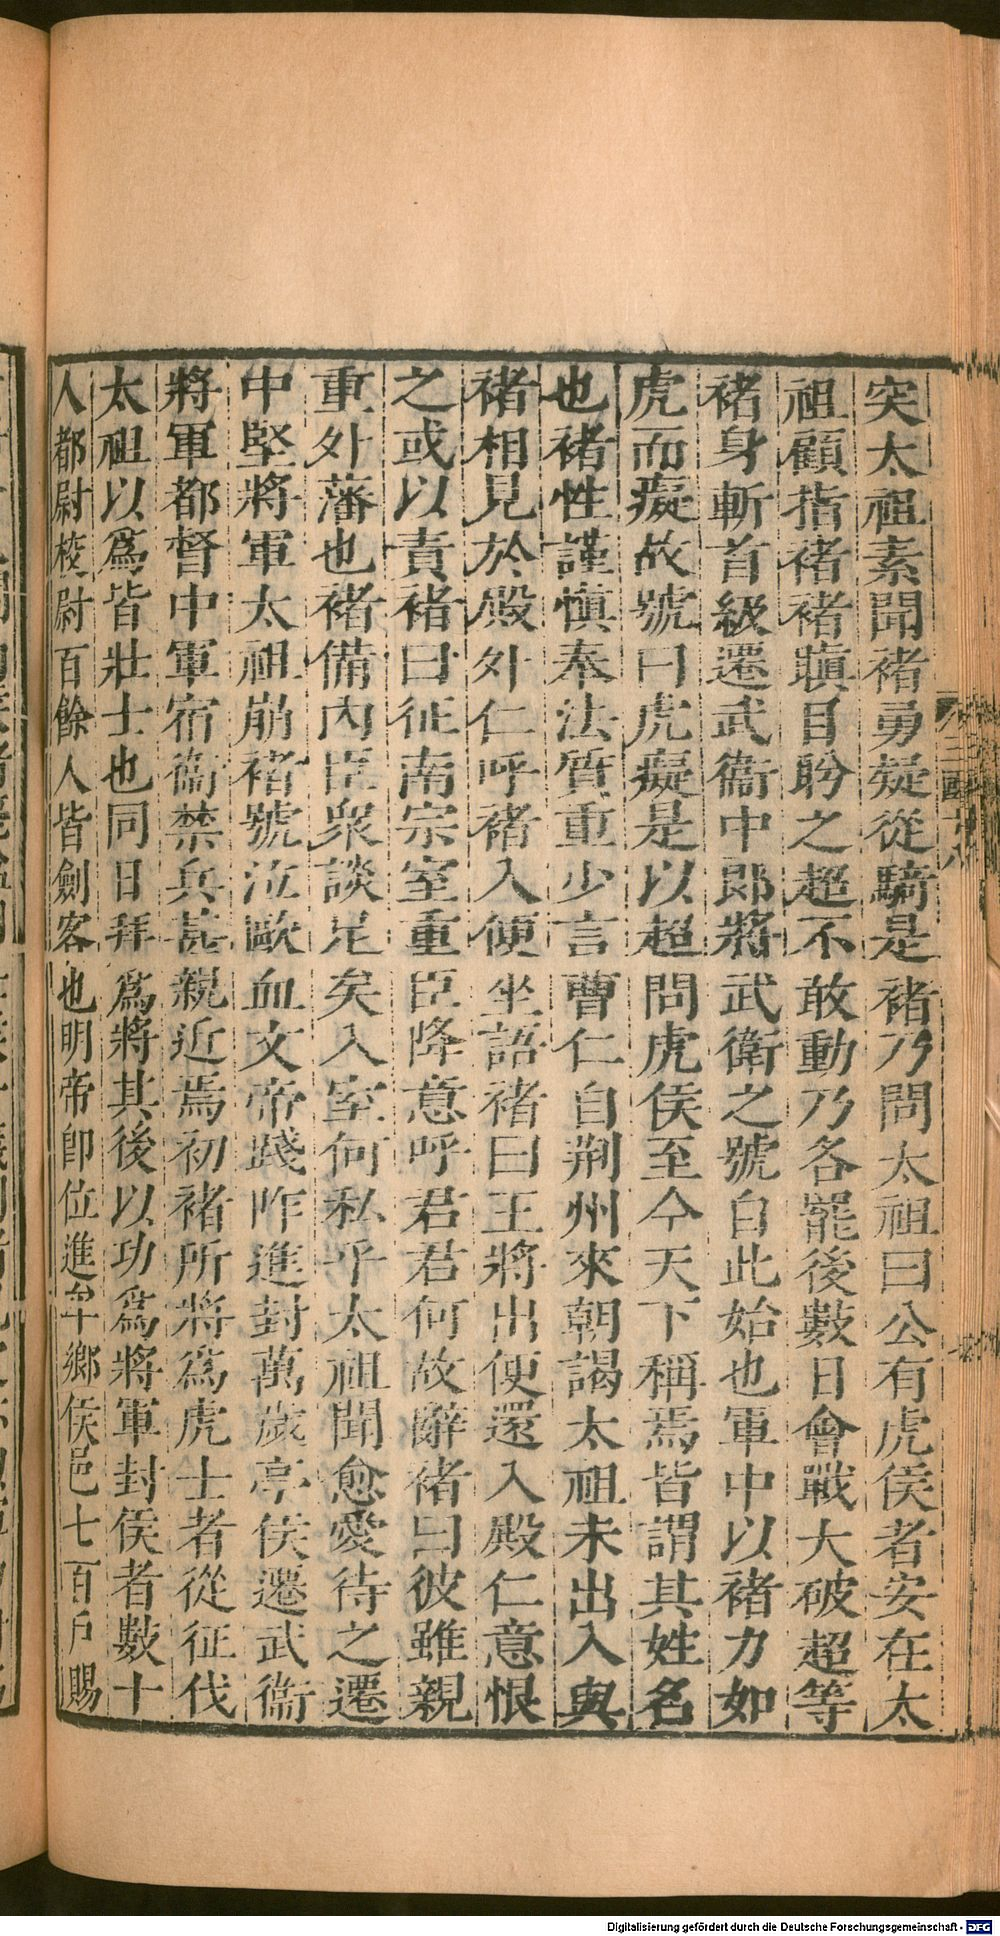 突太祖素聞褚勇疑從騎是褚乃問太祖曰公有虎侯者安在太
祖顧指褚褚瞋目盻之超不敢動乃各罷後數日會戰大破超等
褚身斬首級遷武衞中郎將武衞之號自此始也軍中以褚力如
虎而癡故號曰虎癡是以超問虎侯至今天下稱焉皆謂其姓名
也褚性謹慎奉法質重少言曹仁自荆州來朝謁太祖未出入與
褚相見於殿外仁呼褚入便坐語褚曰王將出便還入殿仁意恨
之或以責褚褚曰征南宗室重臣降意呼君君何故辭褚曰彼雖親
重外藩也褚備內臣衆談足矣入室何私乎太祖聞愈愛待之遷
中堅將軍太祖崩褚號泣歐血文帝踐阼進封萬歲亭侯遷武衞
將軍都督中軍宿衞禁兵甚親近焉初褚所將爲虎士者從征伐
太祖以爲皆壯士也同日拜爲將其後以功爲將軍封侯者數十
人都尉校尉百餘人皆劍客也明帝卽位進牟鄉侯邑七百戶賜
三國
八
Digitalisierung gefördert durch die Deutsche Forschungsgemeinschaft - DFG